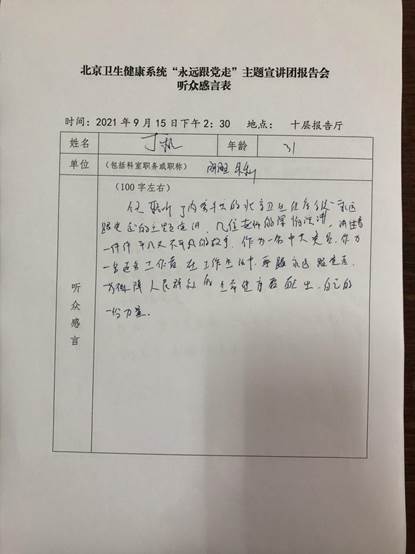 北京卫生健康系统“永远跟党走”主题宣讲团报告会
听众感言表
时间：2021年9月15日下午2：30 地点： 十层报告厅
姓名 丁 年龄 31
单位 （包括科室职务或职称）
（100字左右）
听众感言
今天 听了 的北京卫生健康系统“永远
跟党走”的主题宣讲，几位老师的深情演讲，讲述着
一件件平凡又不平凡的故事。作为一名中共党员，作为
一名医务工作者，在工作生活中，要永远跟党走，
为保障人民群众的生命健康献出自己的
一份力量。